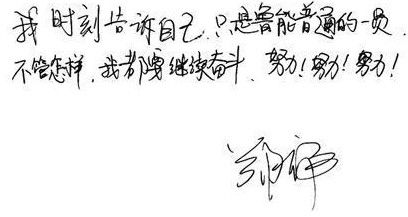 我时刻告诉自己，只是鲁能普通的一员，
不管怎样，我都要继续奋斗，努力！努力！努力！